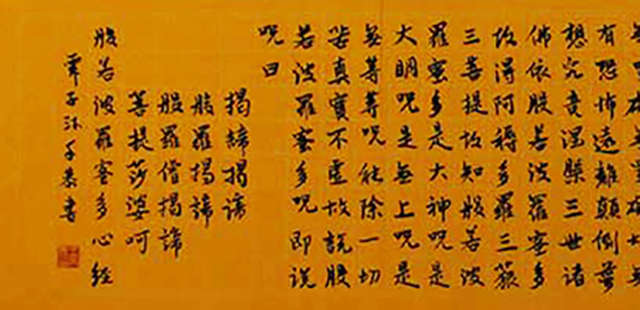 有恐怖遠離顛倒夢
想究竟涅槃三世諸
佛依般若波羅蜜多
故得阿耨多羅三藐
三菩提故知般若波
羅蜜多是大神呪是
大明呪是無上呪是
無等等呪能除一切
苦真實不虛故說般
若波羅蜜多呪即說
呪曰
揭諦揭諦
般羅揭諦
般羅僧揭諦
菩提莎婆呵
般若波羅蜜多心經
子沐手恭書